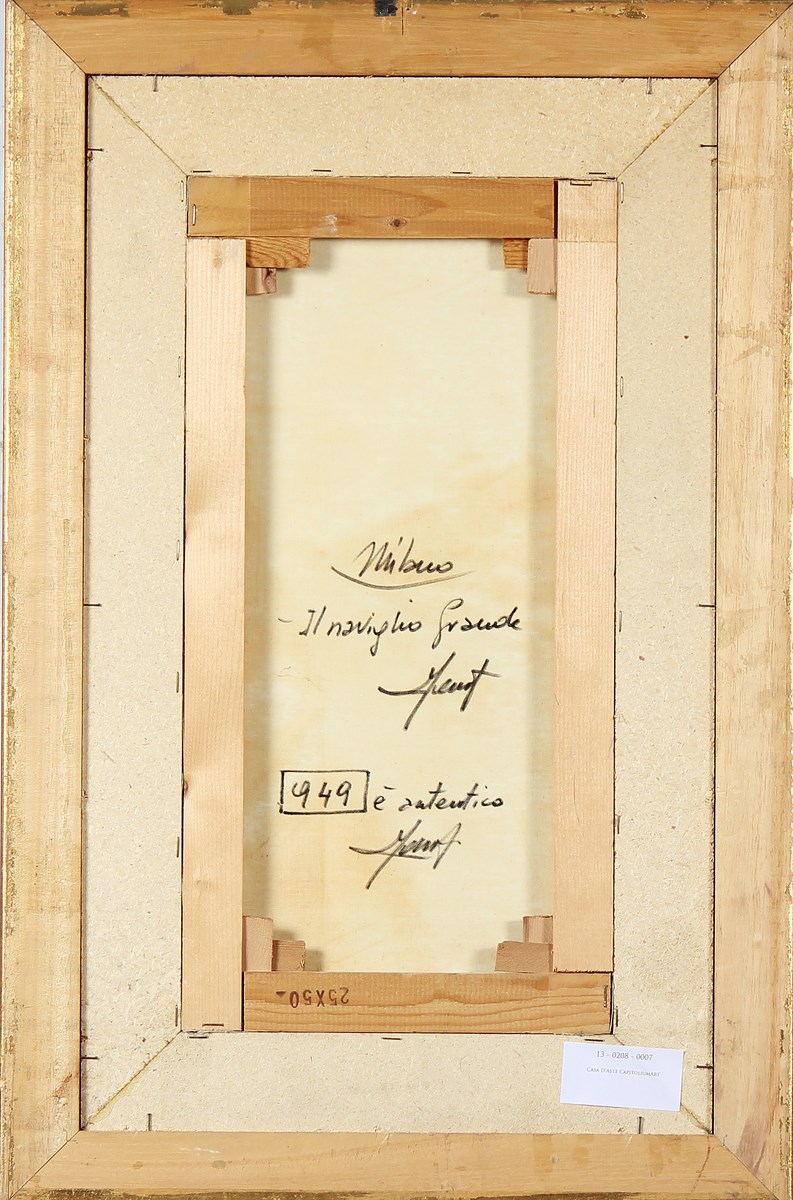 Milano
- Il naviglio Grande
949 è autentico
25X50
13 - 0208 - 0007
CASA D'ASTE CAPITOLIUMART